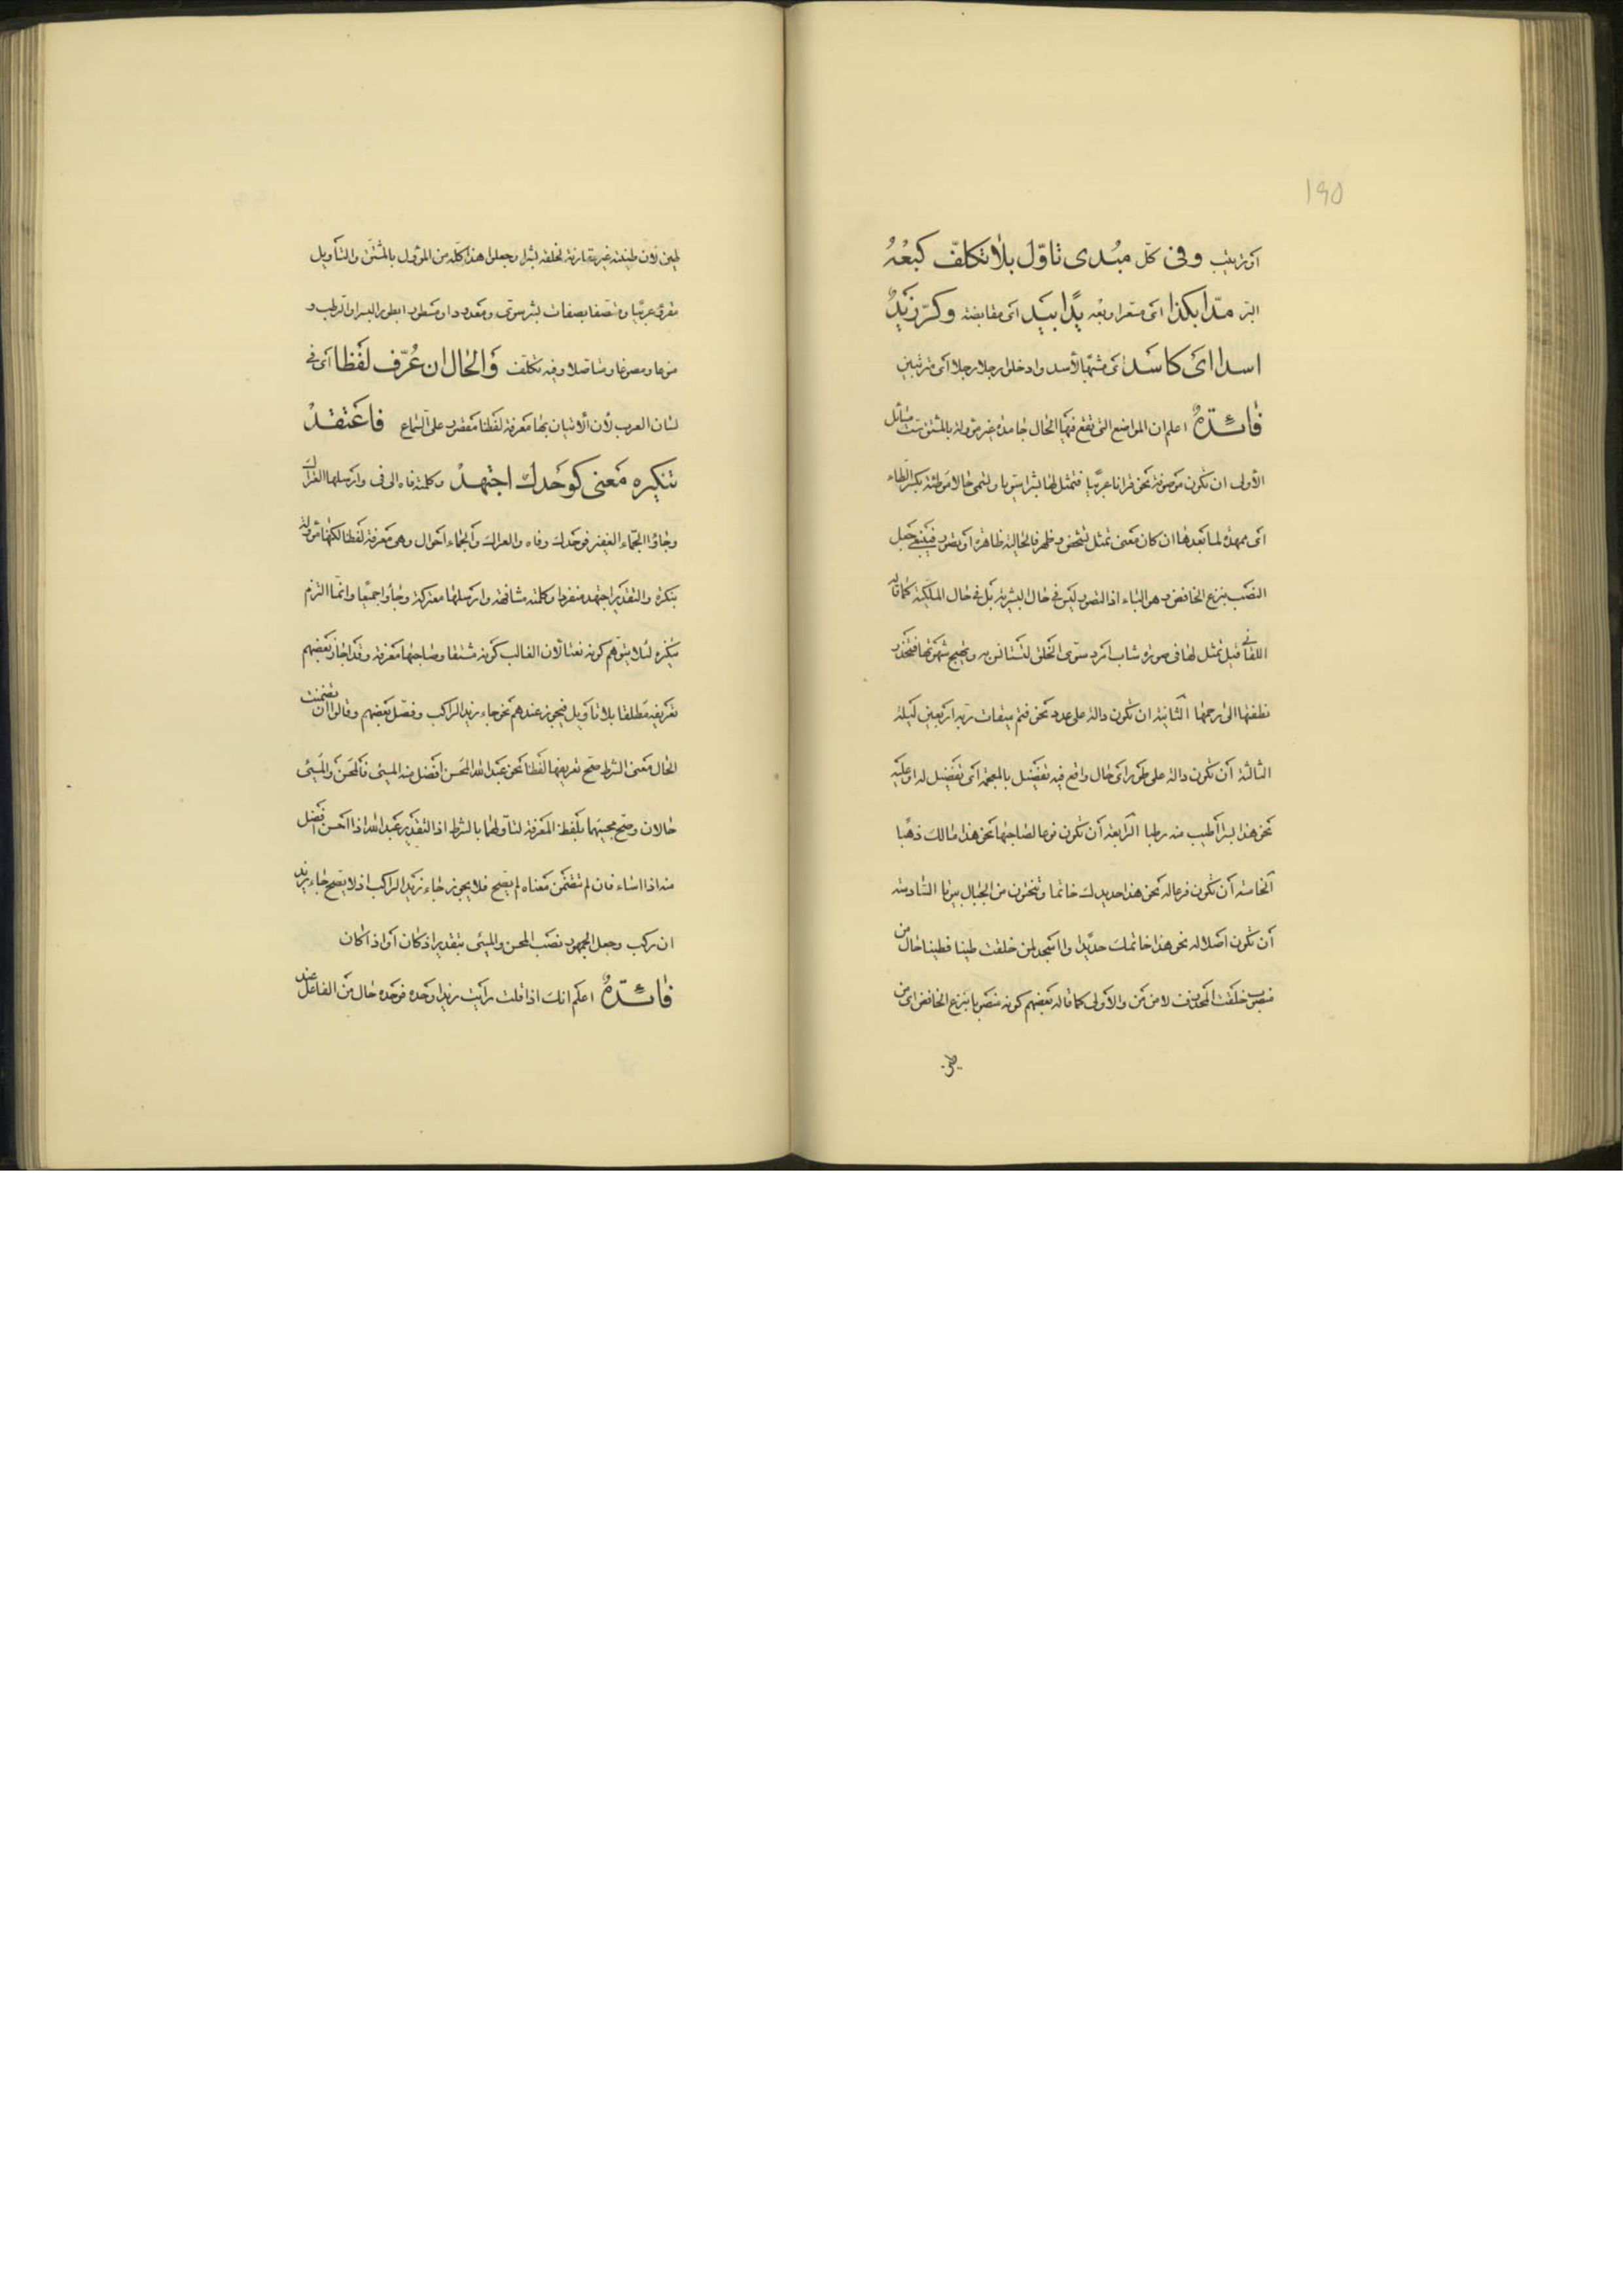 ١٩٥
او ترتيب وفي كل مبدى تأول بلا تكلف كبعه
البر مدا بكذا اى مسعرا وبعه يدا بيد اى مقابضة وكر زيد
اسدا اى كاسد اى مشبها لأسد وادخلوا رجلا رجلا اى مترتبين
فائدة اعلم ان المواضع التى تقع فيها الحال جامدة غير مؤولة بالمشتق ست مسائل
الأولى ان تكون موصوفة نحو قرانا عربيا فتمثل لها بشرا سويا وتسمى حالا موطئة بكسر الطاء
اى ممهدة لما بعدها ان كان معنى تمثل تشخص وظهر فالحالية ظاهرة او تصور فينبغى جعل
النصب بنزع الخافض وهو الباء اذ التصور ليس فى حال البشرية بل فى حال الملكية كما قاله
اللقانى قيل تمثل لها فى صورة شاب امرد سوى الخلق لتستانس به وتهيج شهوتها فتنحدر
نطفتها الى رحمها الثانية ان تكون دالة على عدد نحو فتم ميقات ربه اربعين ليلة
الثالثة ان تكون دالة على طور اى حال واقع فيه تفضيل بالمعجمة اى تفضيل له او عليه
نحو هذا بسرا أطيب منه رطبا الرابعة ان تكون نوعا لصاحبها نحو هذا مالك ذهبا
الخامسة ان تكون فرعا له نحو هذا حديدك خاتما وتنحتون من الجبال بيوتا السادسة
ان تكون اصلا له نحو هذا خاتمك حديدا وااسجد لمن خلقت طينا فطينا حال من
منصوب خلقت المحذوف لا من من والأولى كما قاله بعضهم كونه منصوبا بنزع الخافض اى من
طين
طين لأن طينيته غير مقارنة لخلقه بشرا وجعلوا هذا كله من المؤول بالمشتق والتأويل
مقروء عربيا ومتصفا بصفات بشر سوى ومعدودا ومطورا بطور البسر والرطب و
منوعا ومصوغا ومتاصلا وفيه تكلف والحال ان عرف لفظا اى فى
لسان العرب لأن الاتيان بها معرفة لفظا مقصور على السماع فاعتقد
تنكيره معنى كوحدك اجتهد وكلمته فاه الى فى وارسلها العراك
وجاؤا الجماء الغفير فوحدك وفاه والعراك والجماء احوال وهى معرفة لفظا لكنها مؤولة
بنكرة والتقدير اجتهد منفردا وكلمته مشافهة وارسلها معتركة وجاؤا جميعا وانما التزم
تنكيره لئلا يتوهم كونه نعتا لأن الغالب كونه مشتقا وصاحبها معرفة وقد اجاز بعضهم
تعريفه مطلقا بلا تأويل فيجوز عندهم نحو جاء زيد الراكب وفصل بعضهم وقالوا ان تضمنت
الحال معنى الشرط صح تعريفها لفظا نحو عبد الله المحسن افضل منه المسيئ فالمحسن والمسيئ
حالان وصح مجيئهما بلفظ المعرفة لتأولهما بالشرط اذ التقدير عبد الله اذا احسن افضل
منه اذا اساء فان لم تتضمن معناه لم يصح فلا يجوز جاء زيد الراكب اذ لا يصح جاء زيد
ان ركب وجعل الجمهور نصب المحسن والمسيئ بتقدير اذ كان أو اذا كان
فائدة اعلم انك اذا قلت رأيت زيدا وحده فوحده حال من الفاعل عند